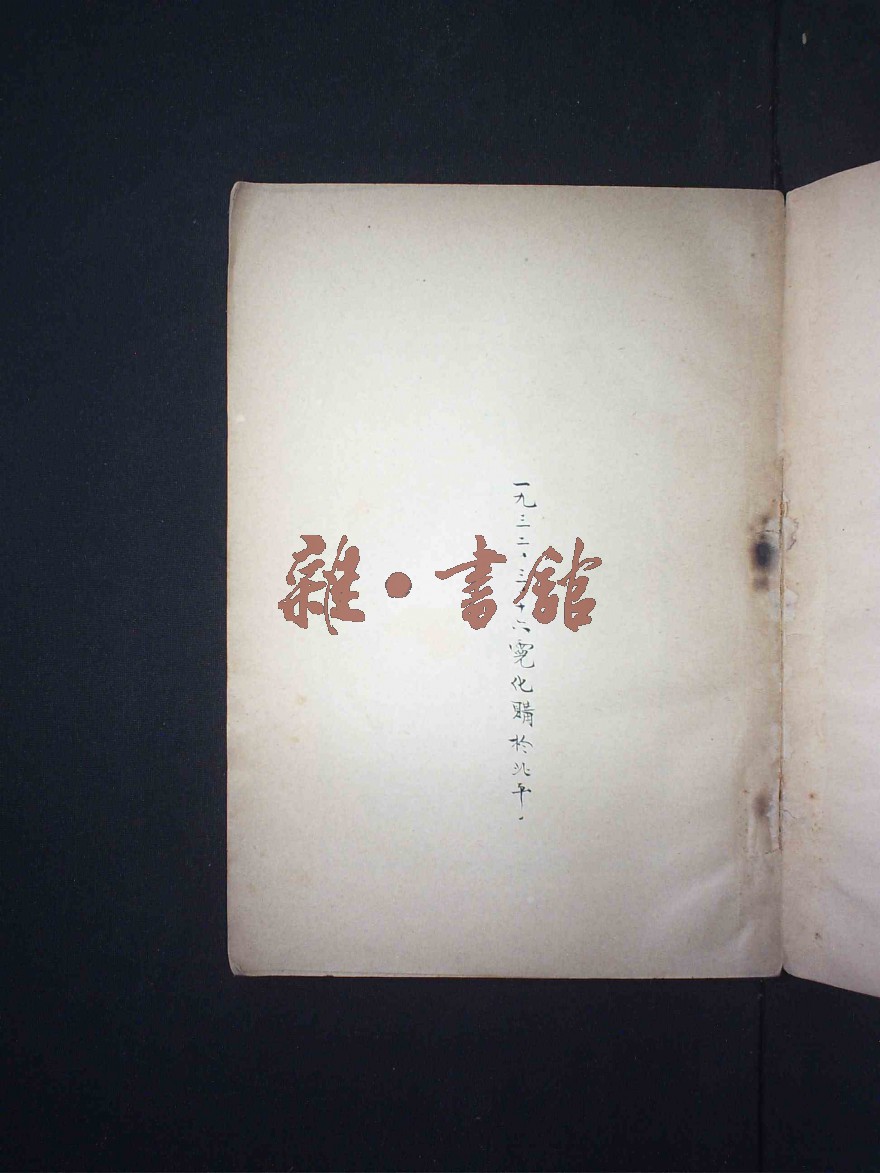 一九三二、三、十六霓化購於北平、
雜•書館